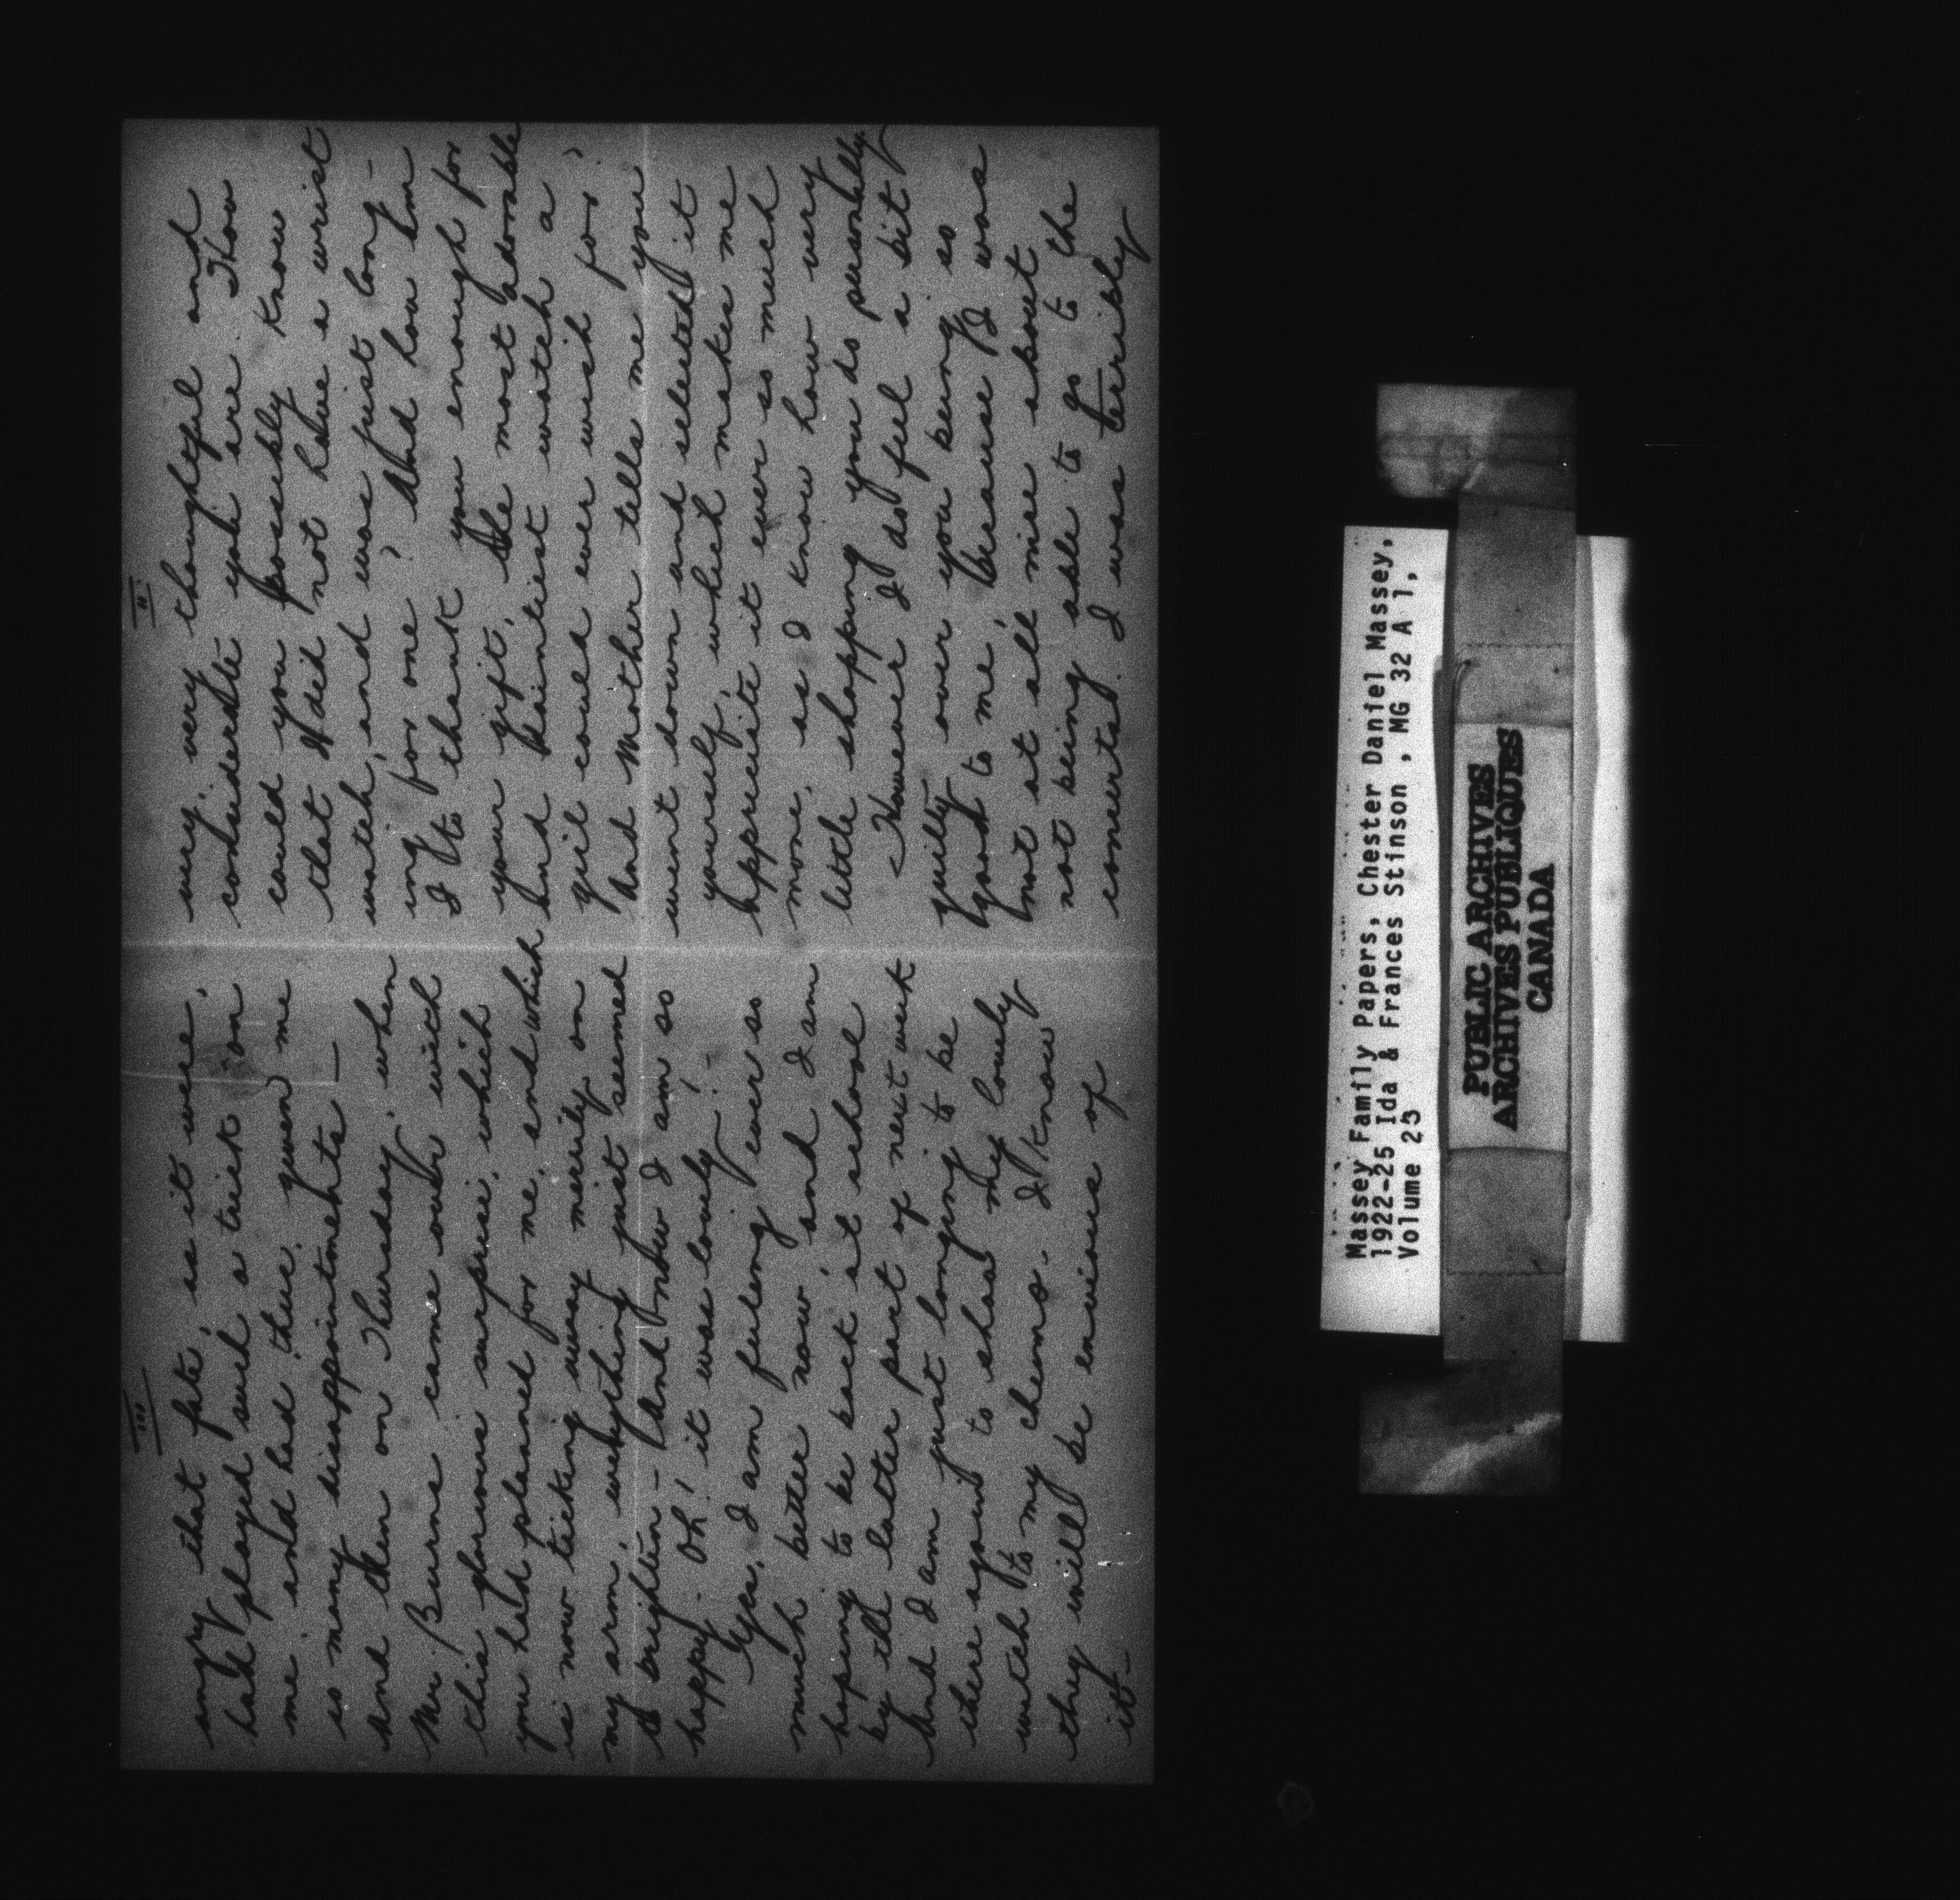 II.
very, very thoughtful and
considerate you are. How
could you possibly know
that I did not have a wrist
watch, and was just long-
ing for one? And how am
I to thank you enough for
your gift, the most adorable
and daintiest watch a
girl could ever wish for?
And Mother tells me you
went down and selected it
yourself, which makes me
appreciate it ever so much
more, as I know how very
little shopping you do personally.
However I do feel a bit
guilty over you being so
good to me, because I was
not at all nice about
not being able to go to the
concerted. I was terribly
III
angry that fate, as it were,
had played such a trick on
me and had thus given me
so many disappointments—
And then on Thursday, when
Mr Burns came over with
this glorious surprise, which
you had planned for me, and which
is now ticking away merrily on
my arm, everything just seemed
to brighten — And now I am so
happy. Oh! it was lovely! -
Yes, I am feeling ever so
much better now, and I am
hoping to be back at school
by the latter part of next week
And I am just longing to be
there again to show my lovely
watch to my chums. I know
they will be envious of
it-
Massey Family Papers, Chester Daniel Massey,
1922-25 Ida & Frances Stinson , MG 32 A 1,
Volume 23
PUBLIC ARCHIVES
ARCHIVES PUBLIQUES
CANADA